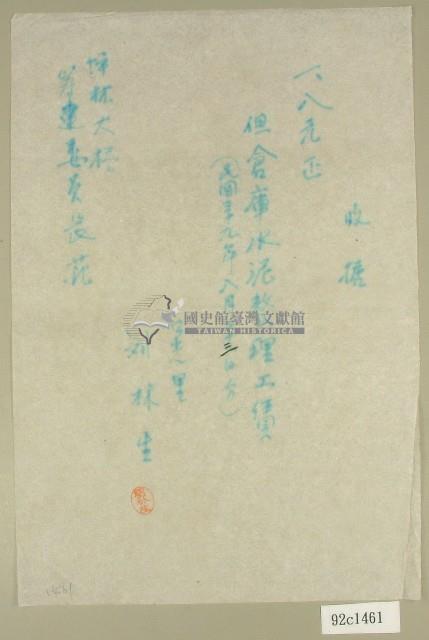 收據
一八元正
但倉庫水泥整理工績
(民國三九年八月三日分)
里
林生
坪林大橋
籌建委員長 范
國史館臺灣文獻館
TAIWAN HISTORICA
92c1461